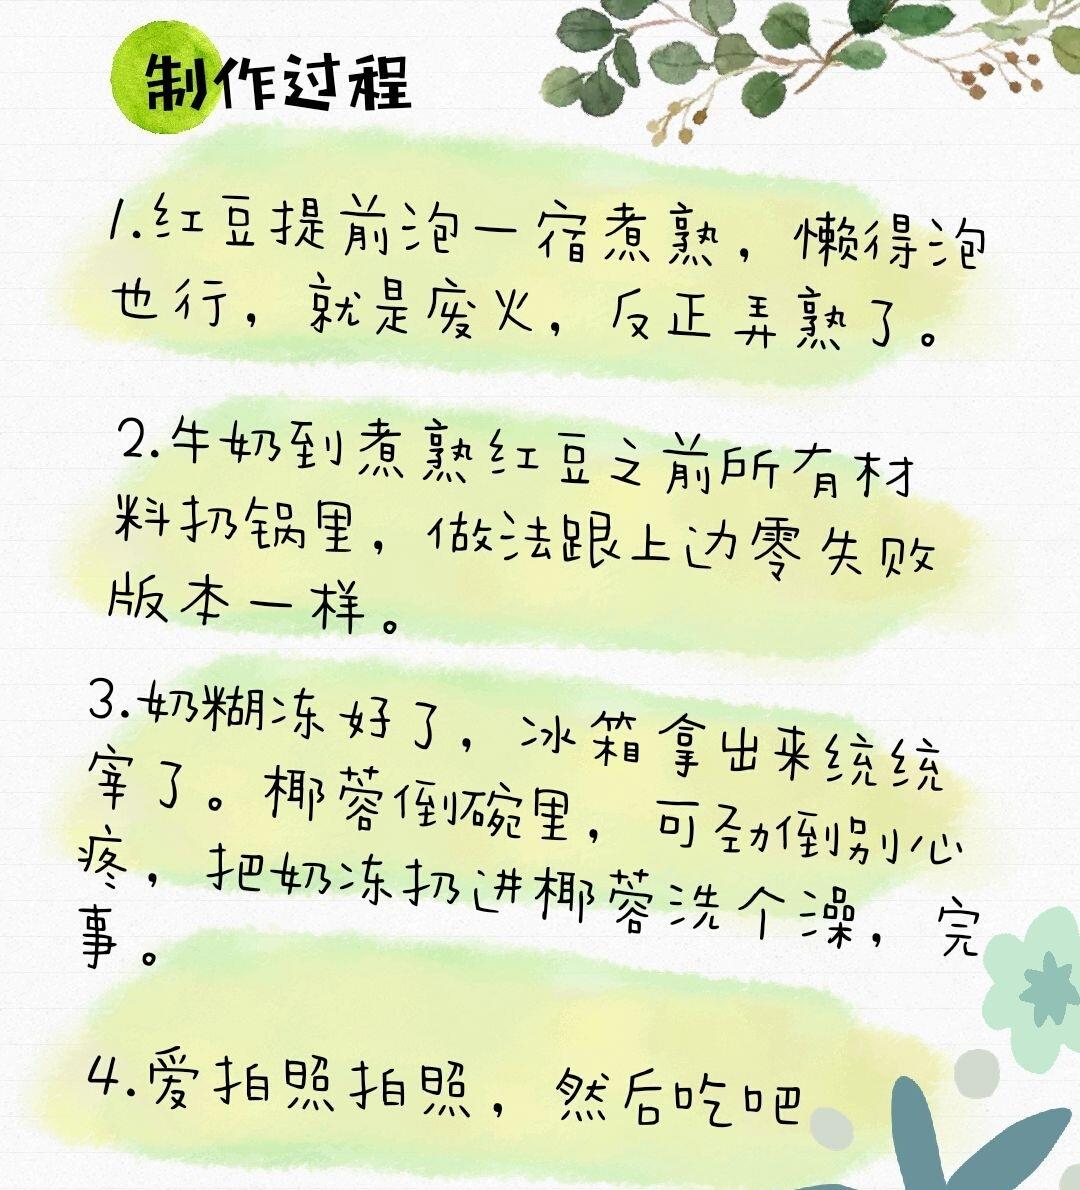 制作过程
1.红豆提前泡一宿煮熟，懒得泡
也行，就是废火，反正弄熟了。
2.牛奶到煮熟红豆之前所有材
料扔锅里，做法跟上边零失败
版本一样。
3.奶糊冻好了，冰箱拿出来统统
宰了。椰蓉倒碗里，可劲倒别心
疼，把奶冻扔进椰蓉洗个澡，完
事。
4.爱拍照拍照，然后吃吧